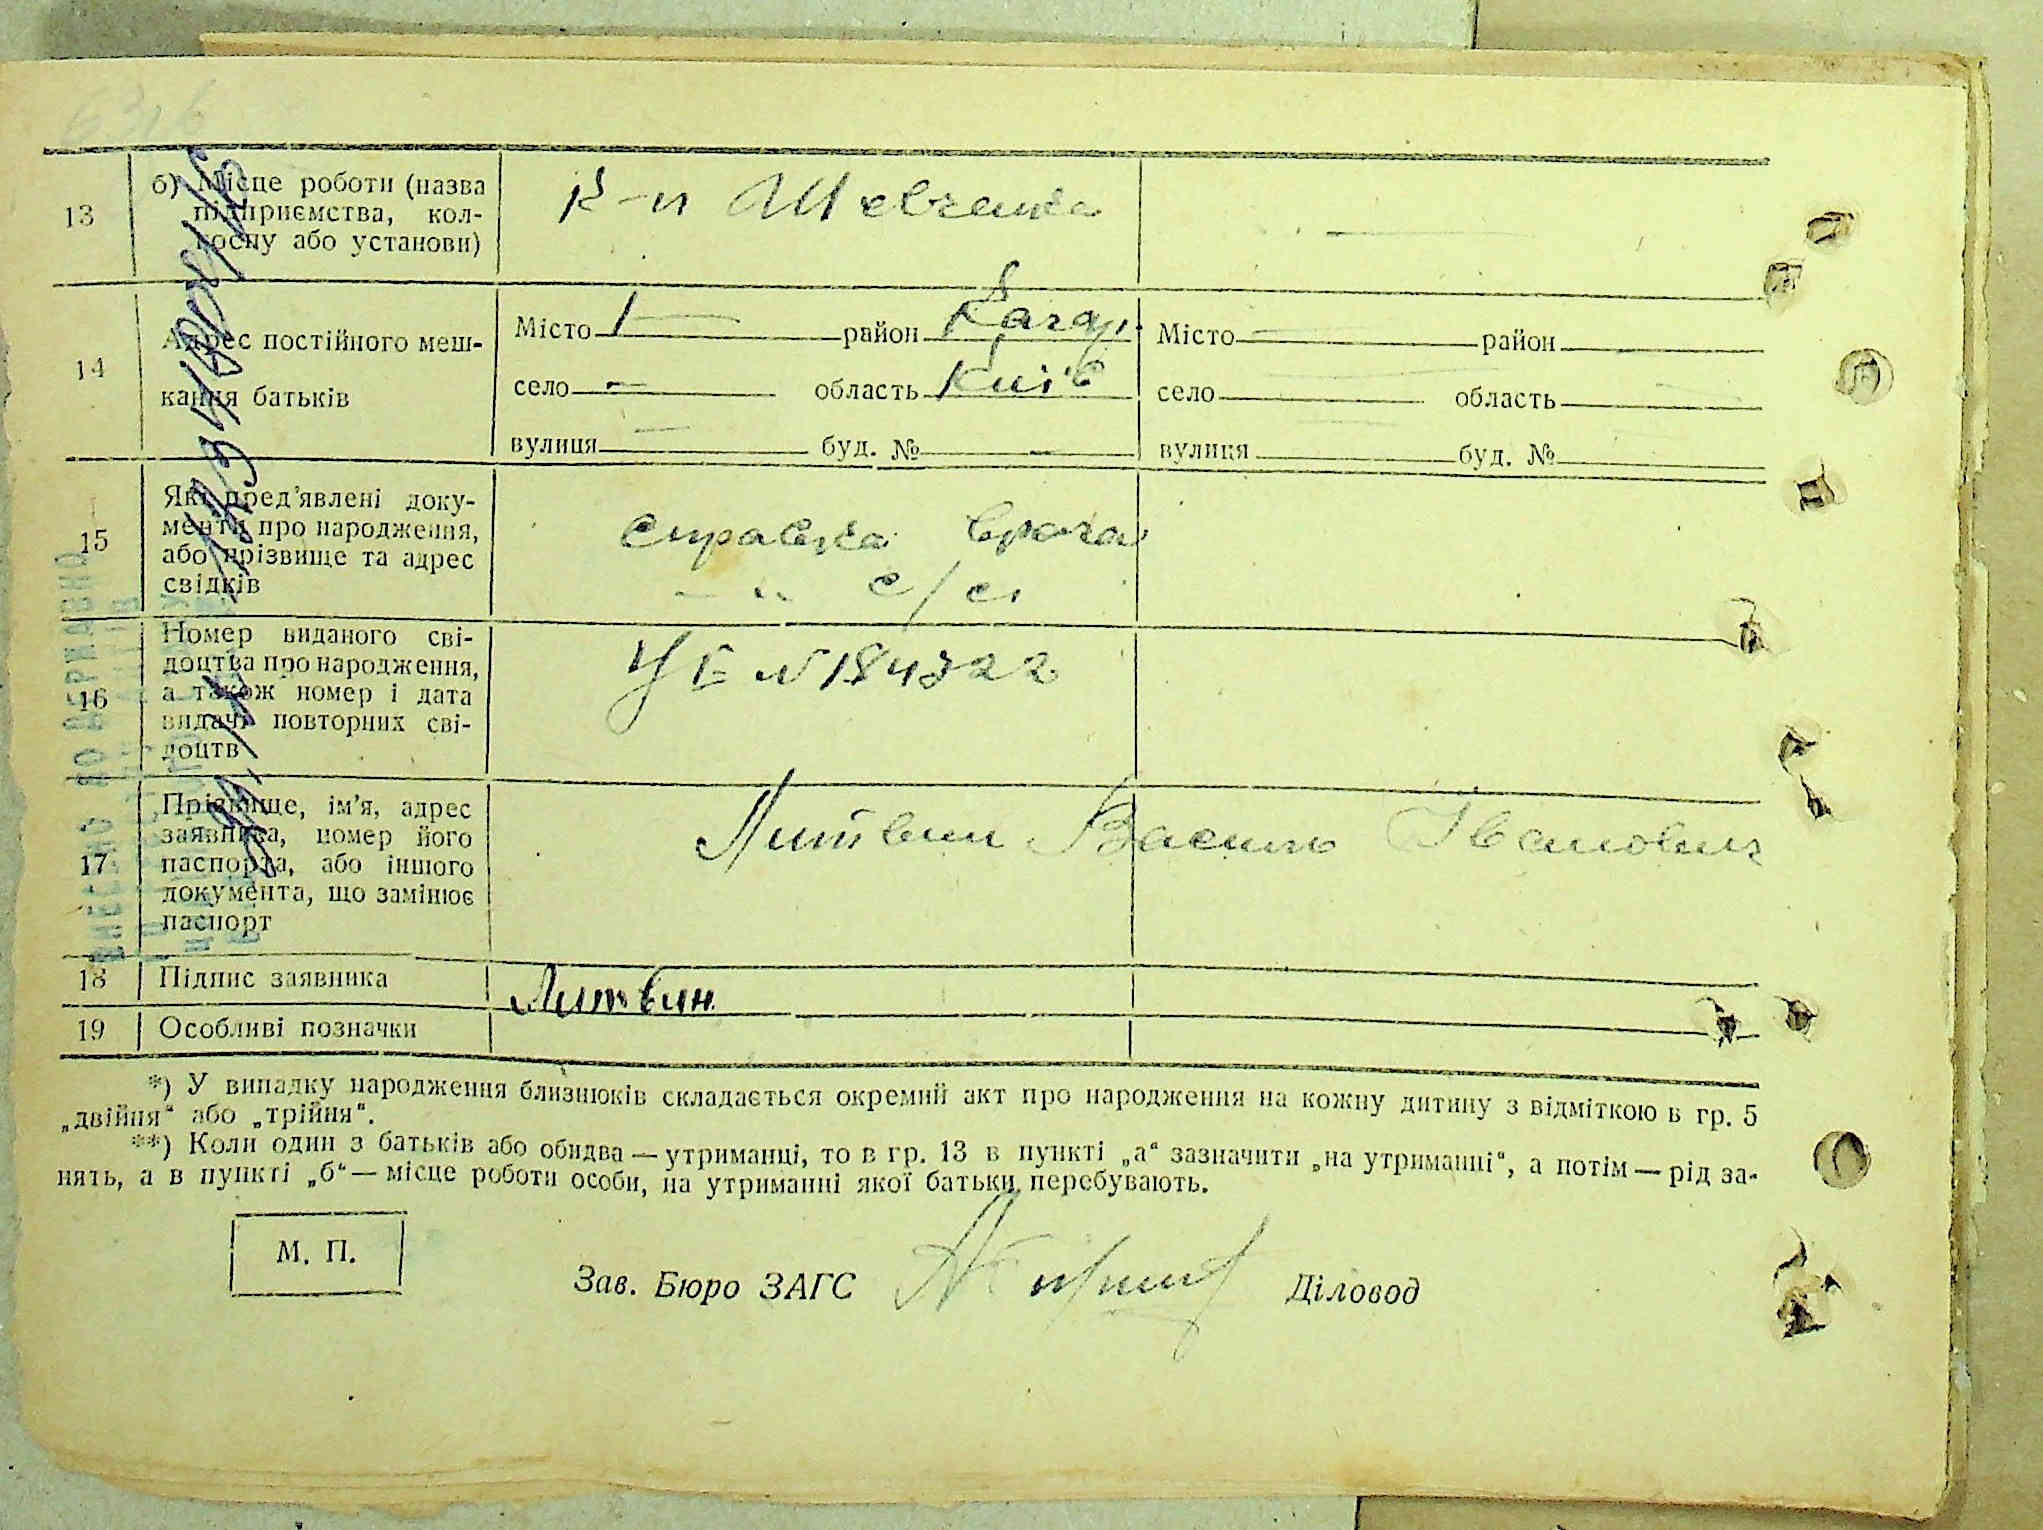 13
б) Місце роботи (назва
підприємства, кол-
госпу або установи)
к-п Шевченка
14
Адрес постійного меш-
кання батьків
Місто район Кагар.
село область Київ
вулиця буд. №
Місто район
село область
вулиця буд. №
15
Які пред'явлені доку-
менти про народження,
або прізвище та адрес
свідків
справка врача
— „ с/с
16
Номер виданого сві-
доцтва про народження,
а також номер і дата
видачі повторних сві-
доцтв
17
Прізвище, ім'я, адрес
заявника, номер його
паспорта, або іншого
документа, що замінює
паспорт
Литвин Василь Іванович
18
Підпис заявника
Литвин
19
Особливі позначки
*) У випадку народження близнюків складається окремий акт про народження на кожну дитину з відміткою в гр. 5
„двійня“ або „трійня“.
**) Коли один з батьків або обидва — утриманці, то в гр. 13 в пункті „а“ зазначити „на утриманні“, а потім — рід за-
нять, а в пункті „б“ — місце роботи особи, на утриманні якої батьки перебувають.
М. П.
Зав. Бюро ЗАГС
Діловод